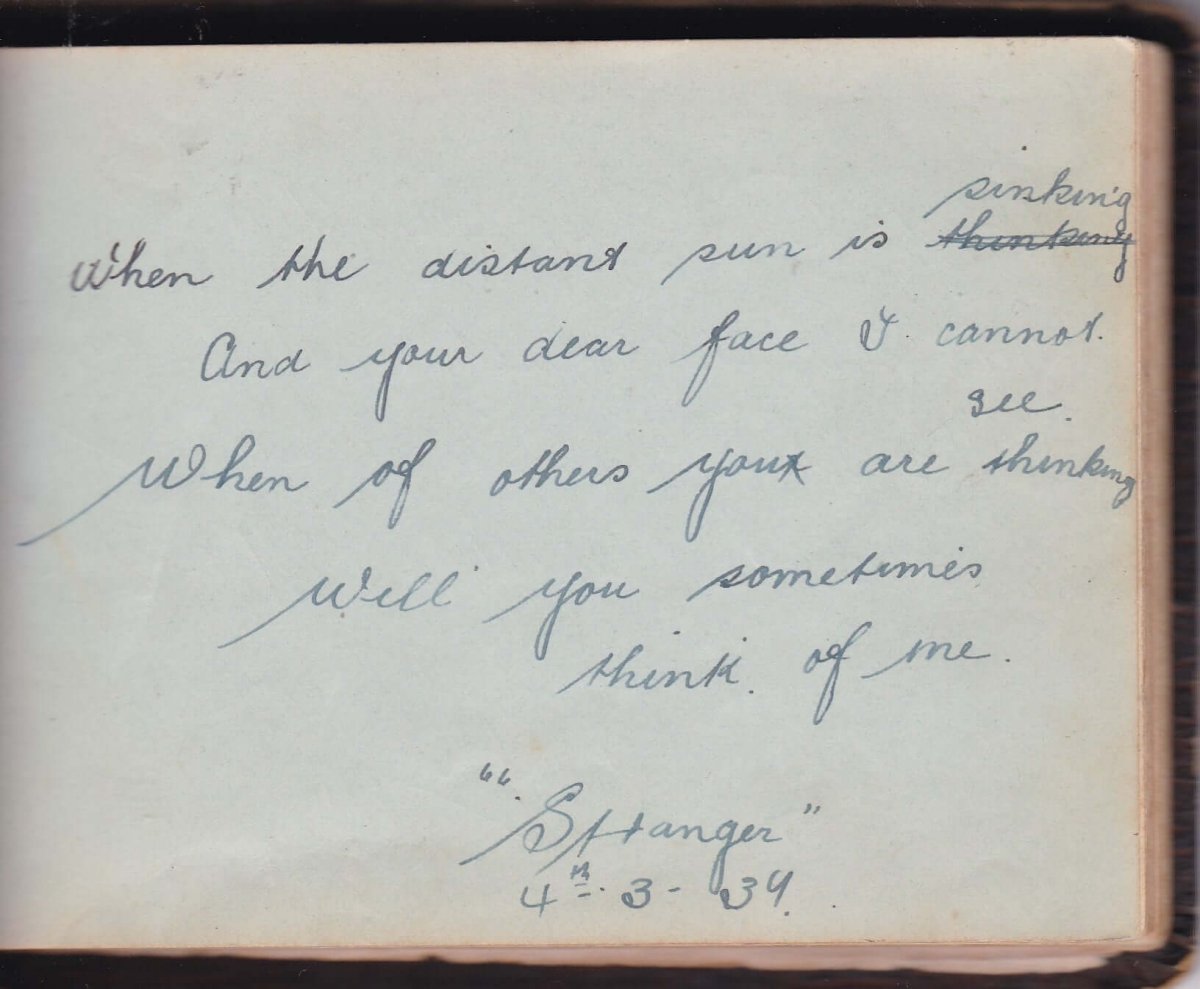 sinking
When the distant sun is ~~thinking~~
And your dear face I cannot.
see.
When of others you are thinking
Will you sometimes
think. of me.
"Stranger"
4th. 3 - 34.